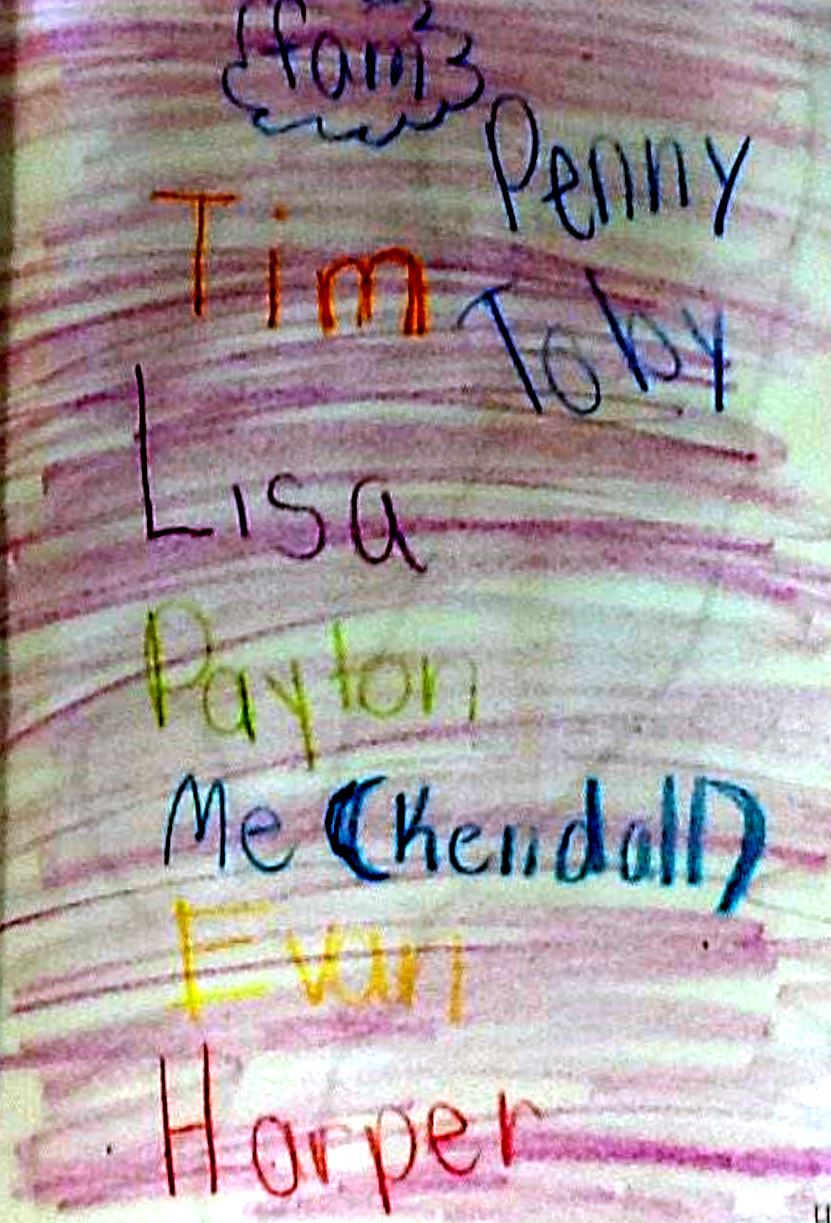 fam
Penny
Tim
Toby
Lisa
Payton
Me (Kendall)
Evan
Harper